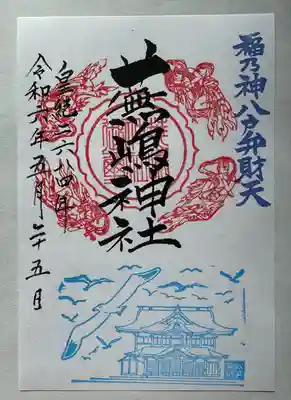 福乃神八戸弁財天
蕪嶋神社
皇紀二六八四年
令和六年五月二十五日